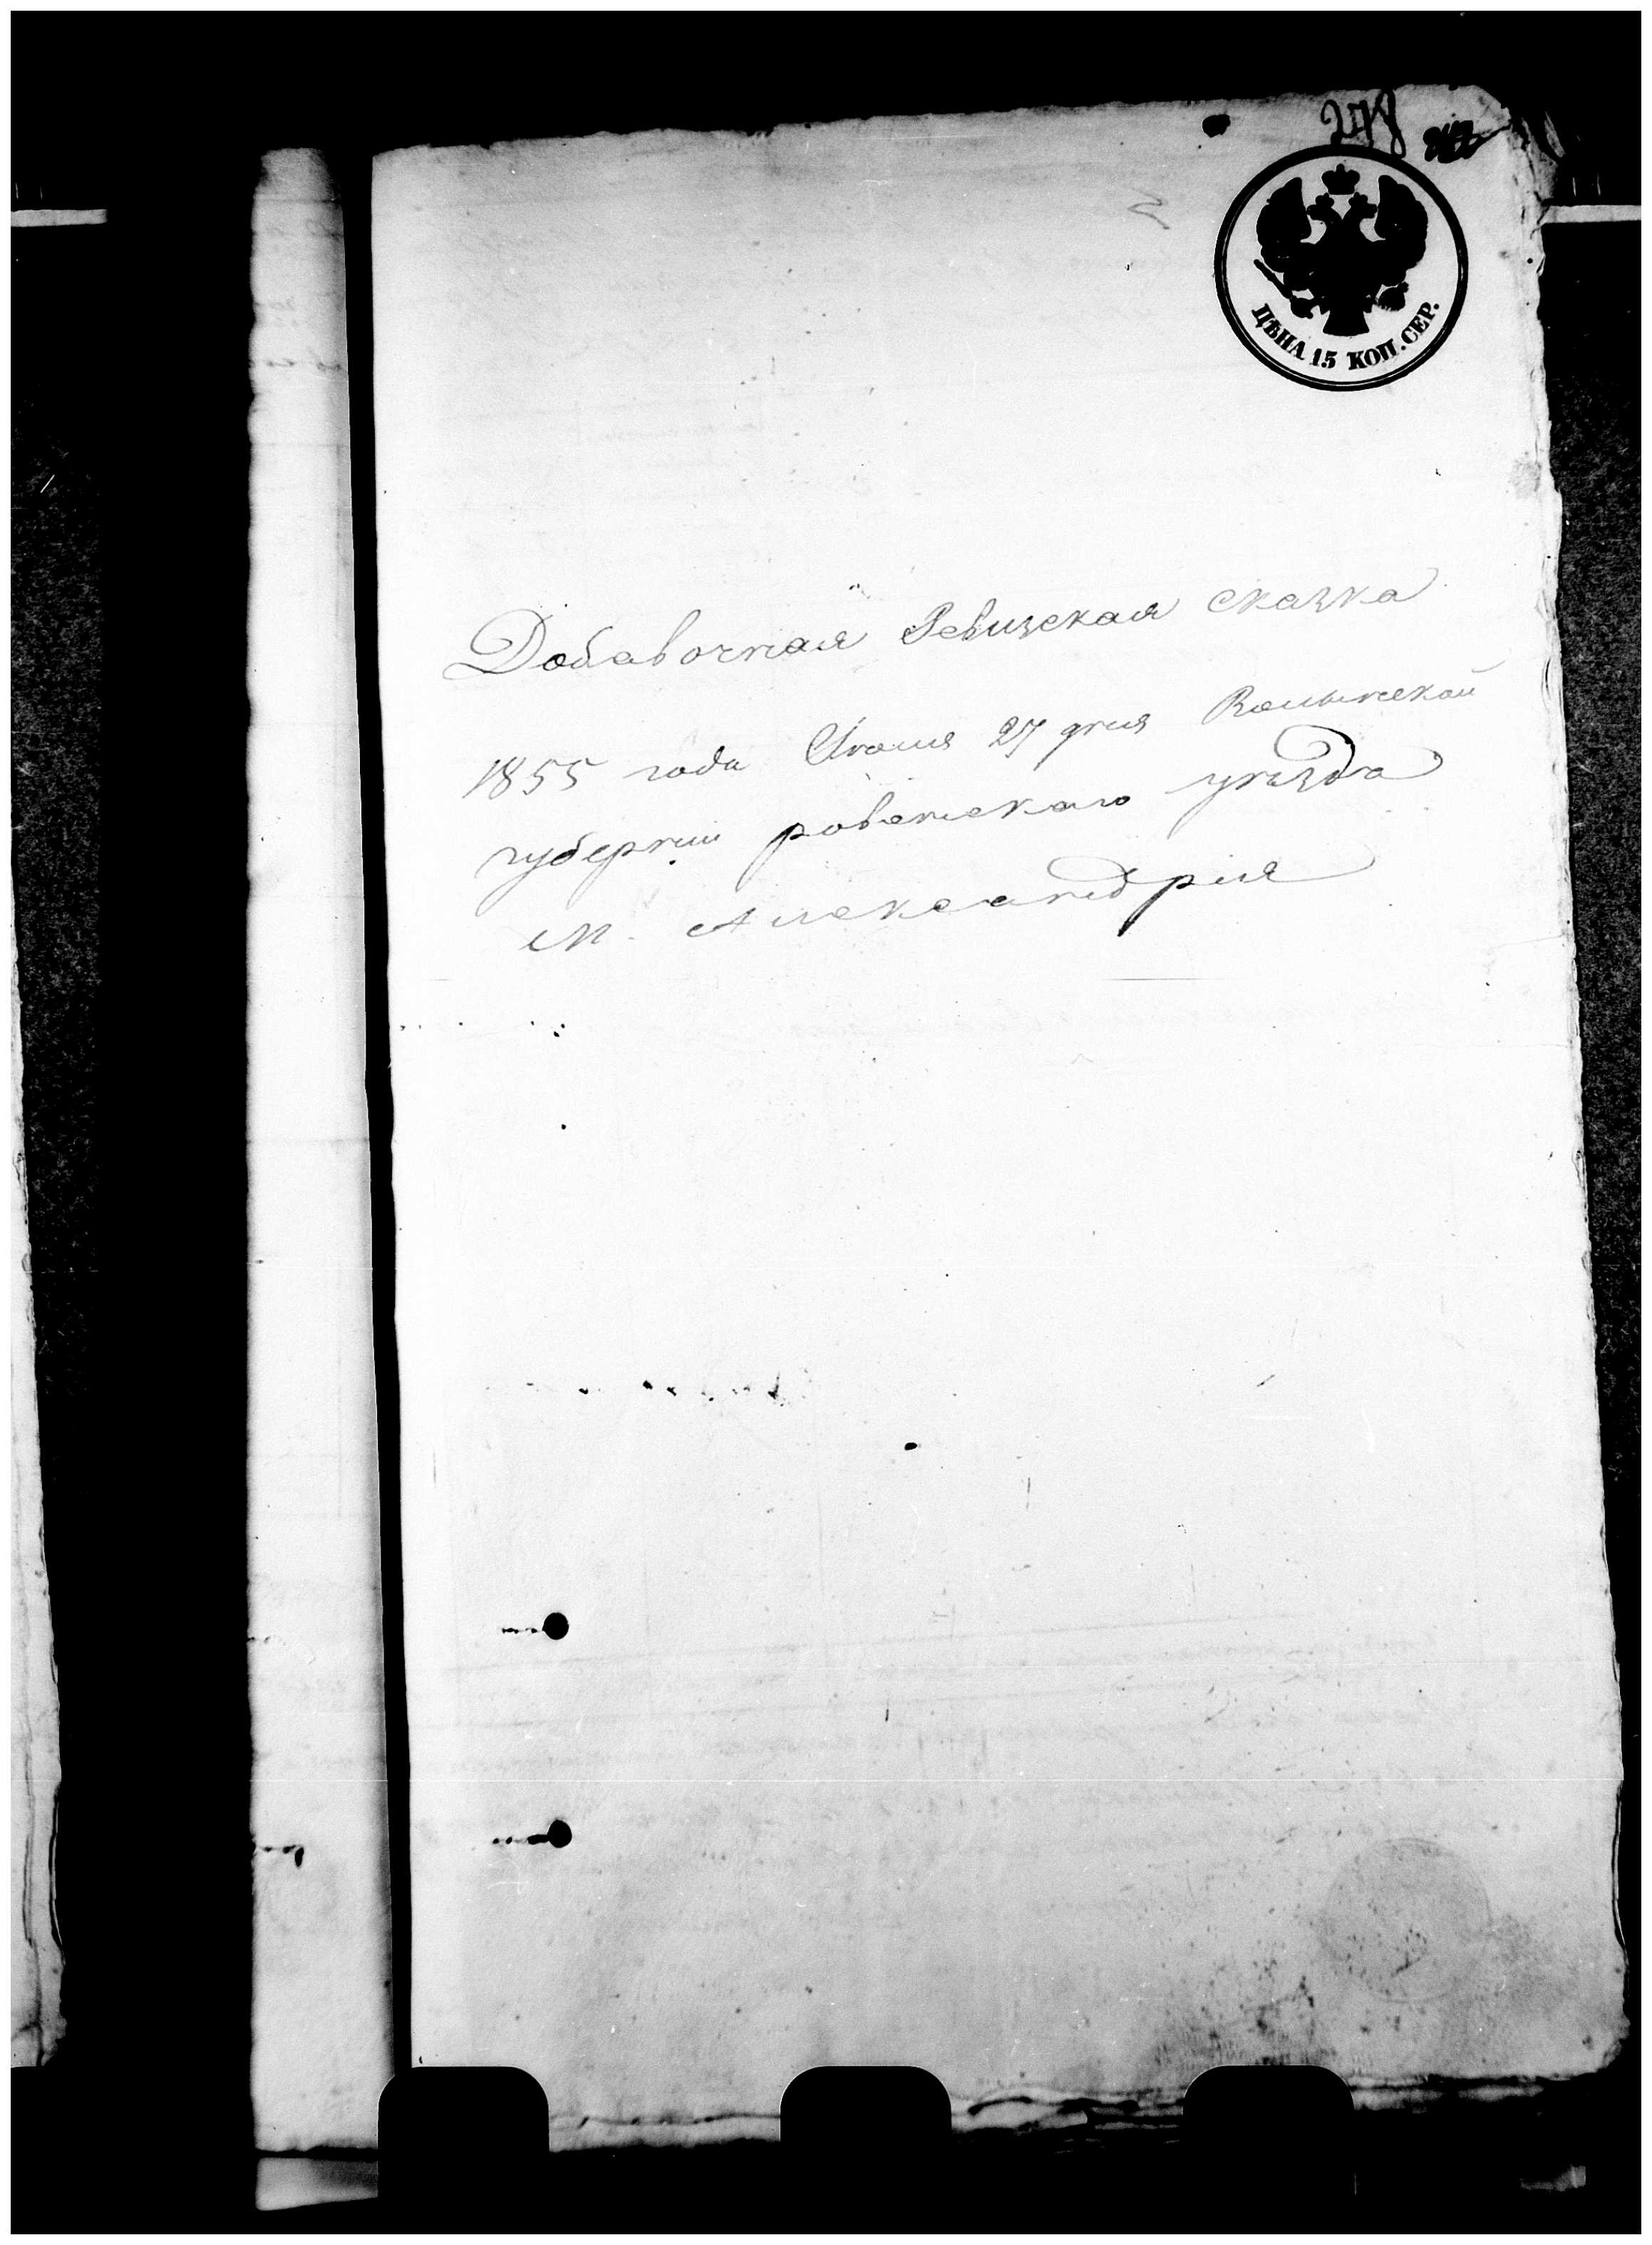 278
ЦѢНА 15 КОП. СЕР.
Добавочная Ревизская сказка
1855 года Июля 27 дня Волынской
губернии ровенскаго уѣзда
М. Александрия